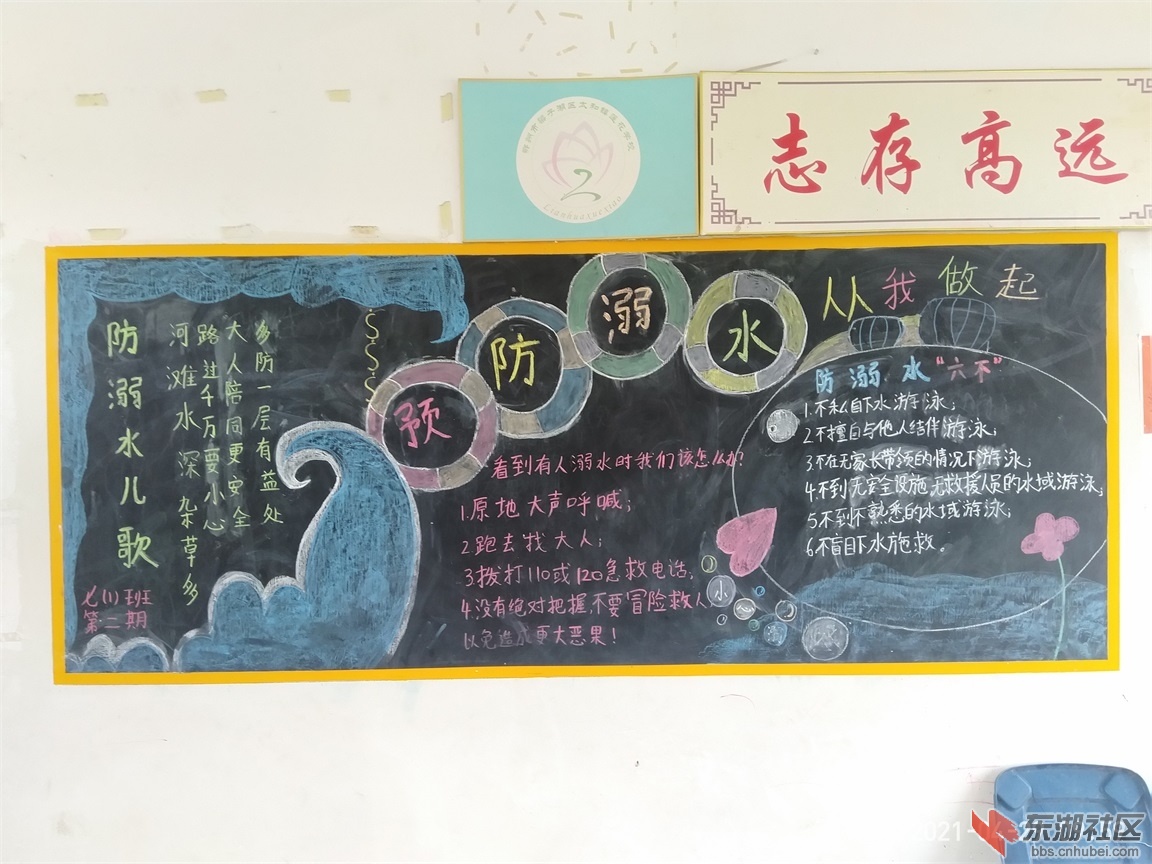 志存高远
Lianhuaxuexiao
2
预防溺水
从我做起
防溺水儿歌
河滩水深杂草多
路过千万要小心
大人陪同更安全
多防一层有益处
七(1)班
第二期
看到有人溺水时我们该怎么办?
1.原地大声呼喊;
2.跑去找大人;
3.拨打110或120急救电话;
4.没有绝对把握,不要冒险救人
以免造成更大恶果!
防溺水"六不"
1.不私自下水游泳;
2.不擅自与他人结伴游泳;
3不在无家长带领的情况下游泳;
4.不到无安全设施、无救援人员的水域游泳;
5不到不熟悉的水域游泳;
6.不盲目下水施救。
东湖社区
bbs.cnhubei.com